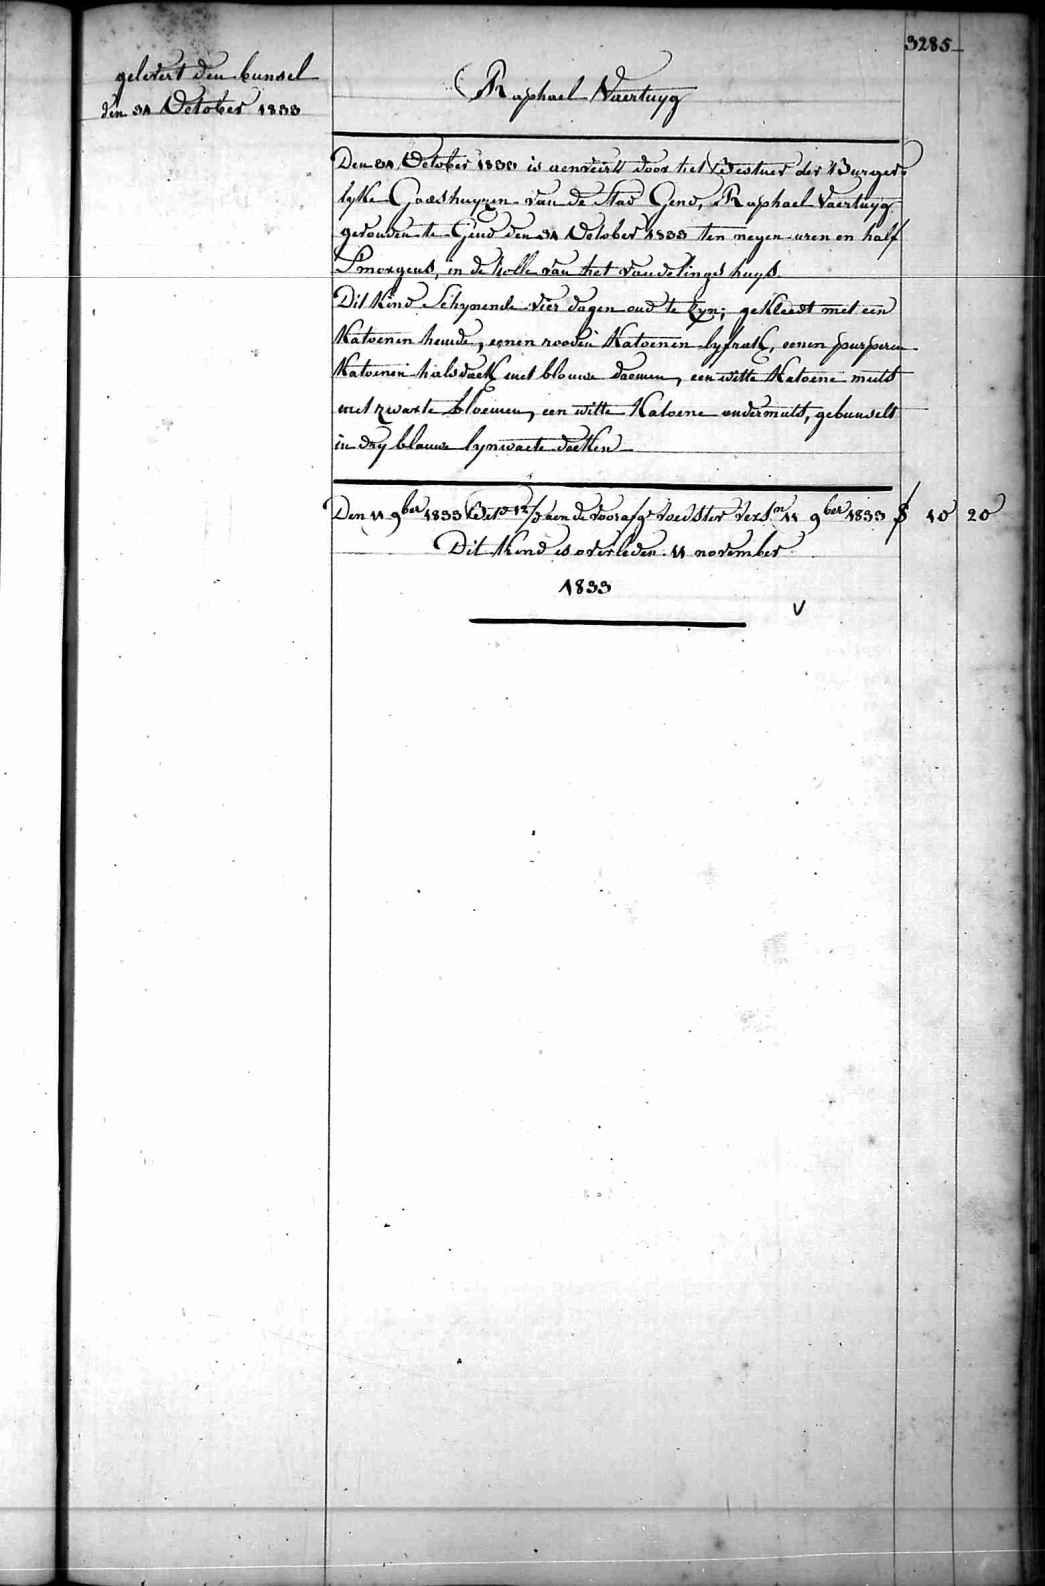 3285
gelevert den bunsel
den 31 October 1833
Raphael Vaertuyg
Den 31 October 1833 is aenveird door het Bestuer der Burger-
lyke Godshuyzen van de Stad Gend, Raphael Vaertuyg
gevonden te Gend den 31 October 1833 ten negen uren en half
S'morgens, in de rolle van het vondelingshuys
Dit Kind Schynende vier dagen oud te zyn; gekleedt met een
Katoenen hemde, eenen rooden Katoenen lyfrok, eenen purperen
Katoenen halsdoek met blouwe bloemen, een witte Katoene muts
met zwarte bloemen, een witte Katoene ondermuts, gebunselt
in dry blauwe lynwaete doeken
Den 11 9ber 1833 aen de voorafge voedster versn 11 9ber 1833 $ 10 20
Dit Kind is overleden 11 november
1833
V